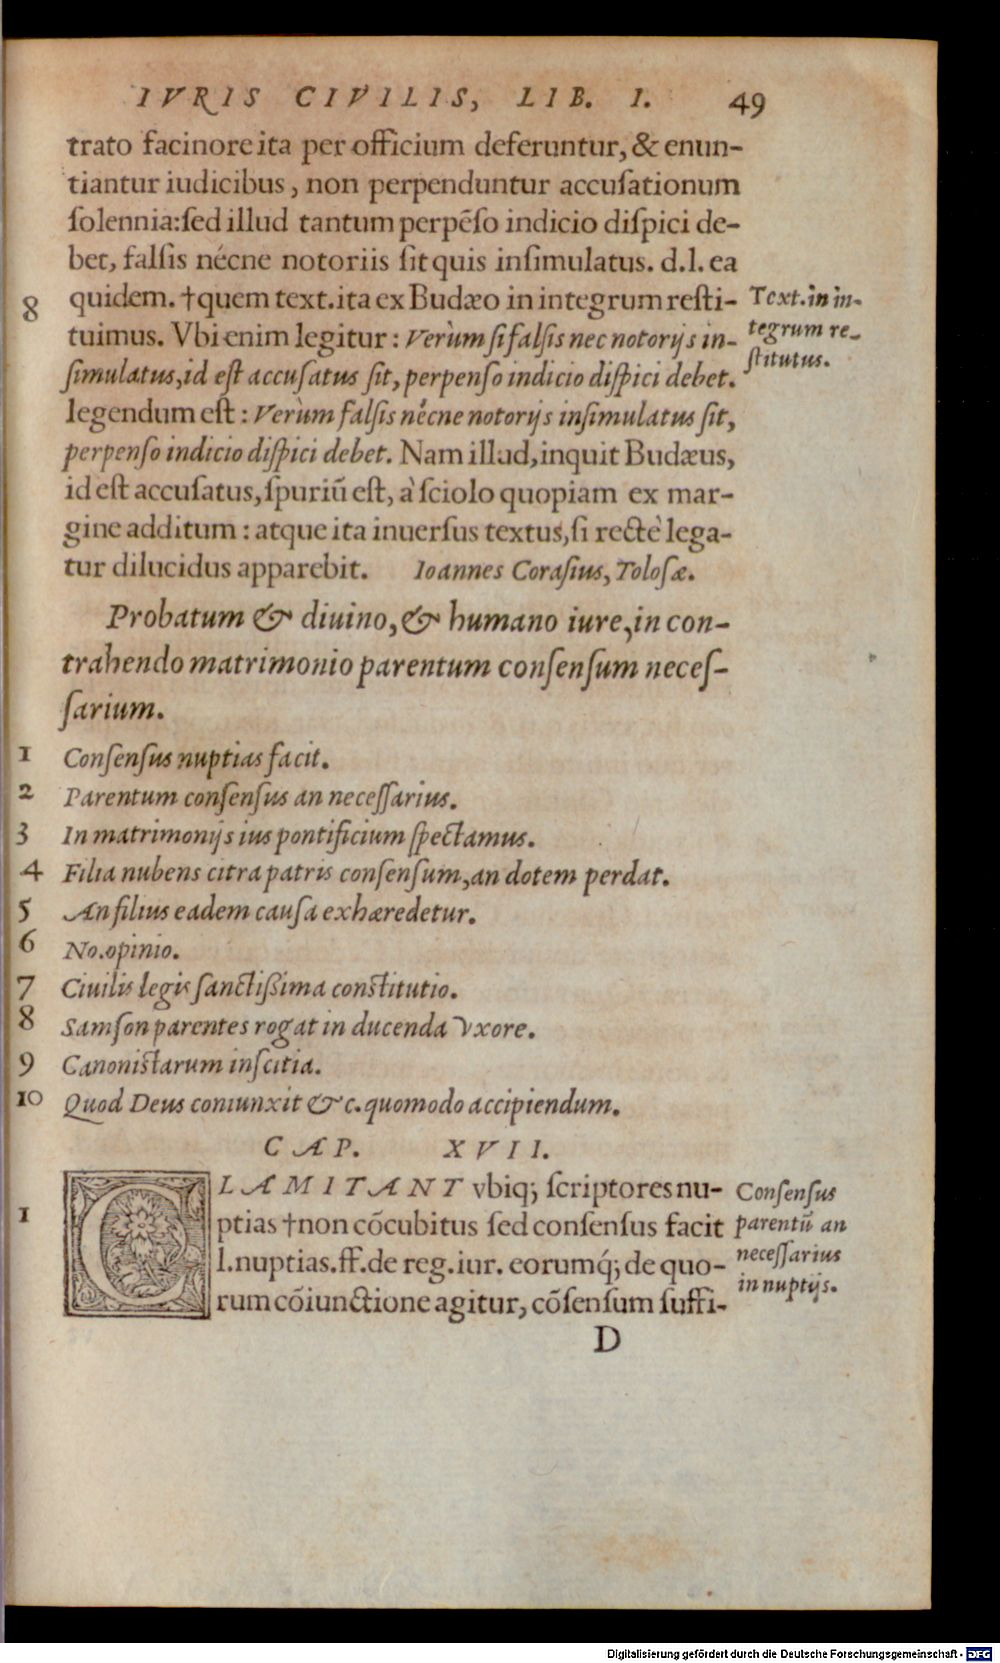 IVRIS CIVILIS, LIB. I. 49
trato facinore ita per officium deferuntur, & enun-
tiantur iudicibus, non perpenduntur accuſationum
ſolennia: ſed illud tantum perpẽſo indicio diſpici de-
bet, falſis nécne notoriis ſit quis inſimulatus. d.l. ea
8 quidem. †quem text. ita ex Budæo in integrum reſti-
tuimus. Vbi enim legitur: Verùm ſi falſis nec notorijs in-
ſimulatus, id eſt accuſatus ſit, perpenſo indicio diſpici debet.
legendum eſt: Verùm falſis nécne notorijs inſimulatus ſit,
perpenſo indicio diſpici debet. Nam illud, inquit Budæus,
id eſt accuſatus, ſpuriũ eſt, à ſciolo quopiam ex mar-
gine additum: atque ita inuerſus textus, ſi rectè lega-
tur dilucidus apparebit. Ioannes Coraſius, Toloſæ.
Text. in in-
tegrum re-
ſtitutus.
Probatum & diuino, & humano iure, in con-
trahendo matrimonio parentum conſenſum neceſ-
ſarium.
1 Conſenſus nuptias facit.
2 Parentum conſenſus an neceſſarius.
3 In matrimonijs ius pontificium ſpectamus.
4 Filia nubens citra patris conſenſum, an dotem perdat.
5 An filius eadem cauſa exhæredetur.
6 No. opinio.
7 Ciuilis legis ſanctißima conſtitutio.
8 Samſon parentes rogat in ducenda vxore.
9 Canoniſtarum inſcitia.
10 Quod Deus coniunxit &c. quomodo accipiendum.
CAP. XVII.
CLAMITANT vbiq; ſcriptores nu-
1 ptias †non cõcubitus ſed conſenſus facit
l. nuptias. ff. de reg. iur. eorumq́; de quo-
rum cõiunctione agitur, cõſenſum ſuffi-
Conſenſus
parentũ an
neceſſarius
in nuptijs.
D
Digitalisierung gefördert durch die Deutsche Forschungsgemeinschaft - DFG